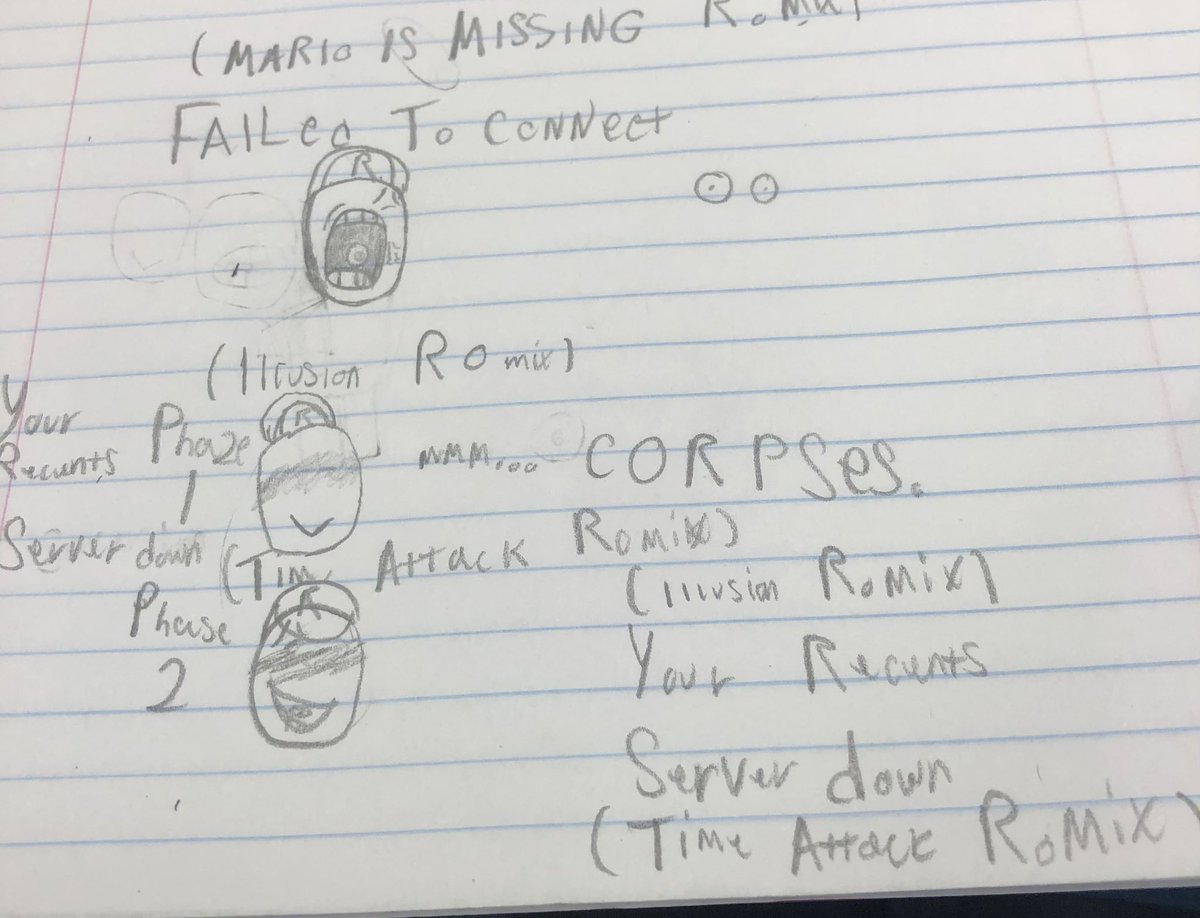 (MARIO IS MISSING RoMIX)
FAILED To CONNect
R
(Illusion ROmix)
Your
Recunts
Phaze
1
R
MMM... CORPSes.
Server down
(Time Attack RoMix)
Phase
2
R
(Illusion RoMix)
Your Recunts
Server down
(Time Attack RoMix)